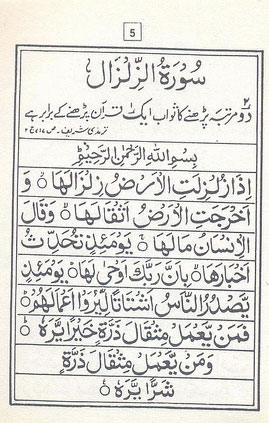 5
سُوْرَةُ الزِّلْزَالِ
دو مرتبہ پڑھنے کا ثواب ایک قرآن پڑھنے کے برابر ہے
ترمذی شریف۔ ص ۱۱۷ ج ۲
بِسْمِ اللهِ الرَّحْمٰنِ الرَّحِيْمِ
اِذَا زُلْزِلَتِ الْاَرْضُ زِلْزَالَهَا ۙ وَ
اَخْرَجَتِ الْاَرْضُ اَثْقَالَهَا ۙ وَقَالَ
الْاِنْسَانُ مَالَهَا ۚ يَوْمَئِذٍ تُحَدِّثُ
اَخْبَارَهَا ۙ بِاَنَّ رَبَّكَ اَوْحٰى لَهَا ؕ يَوْمَئِذٍ
يَّصْدُرُ النَّاسُ اَشْتَاتًا ۙ لِّيُرَوْا اَعْمَالَهُمْ ؕ
فَمَنْ يَّعْمَلْ مِثْقَالَ ذَرَّةٍ خَيْرًا يَّرَهٗ ؕ
وَمَنْ يَّعْمَلْ مِثْقَالَ ذَرَّةٍ
شَرًّا يَّرَهٗ ۠